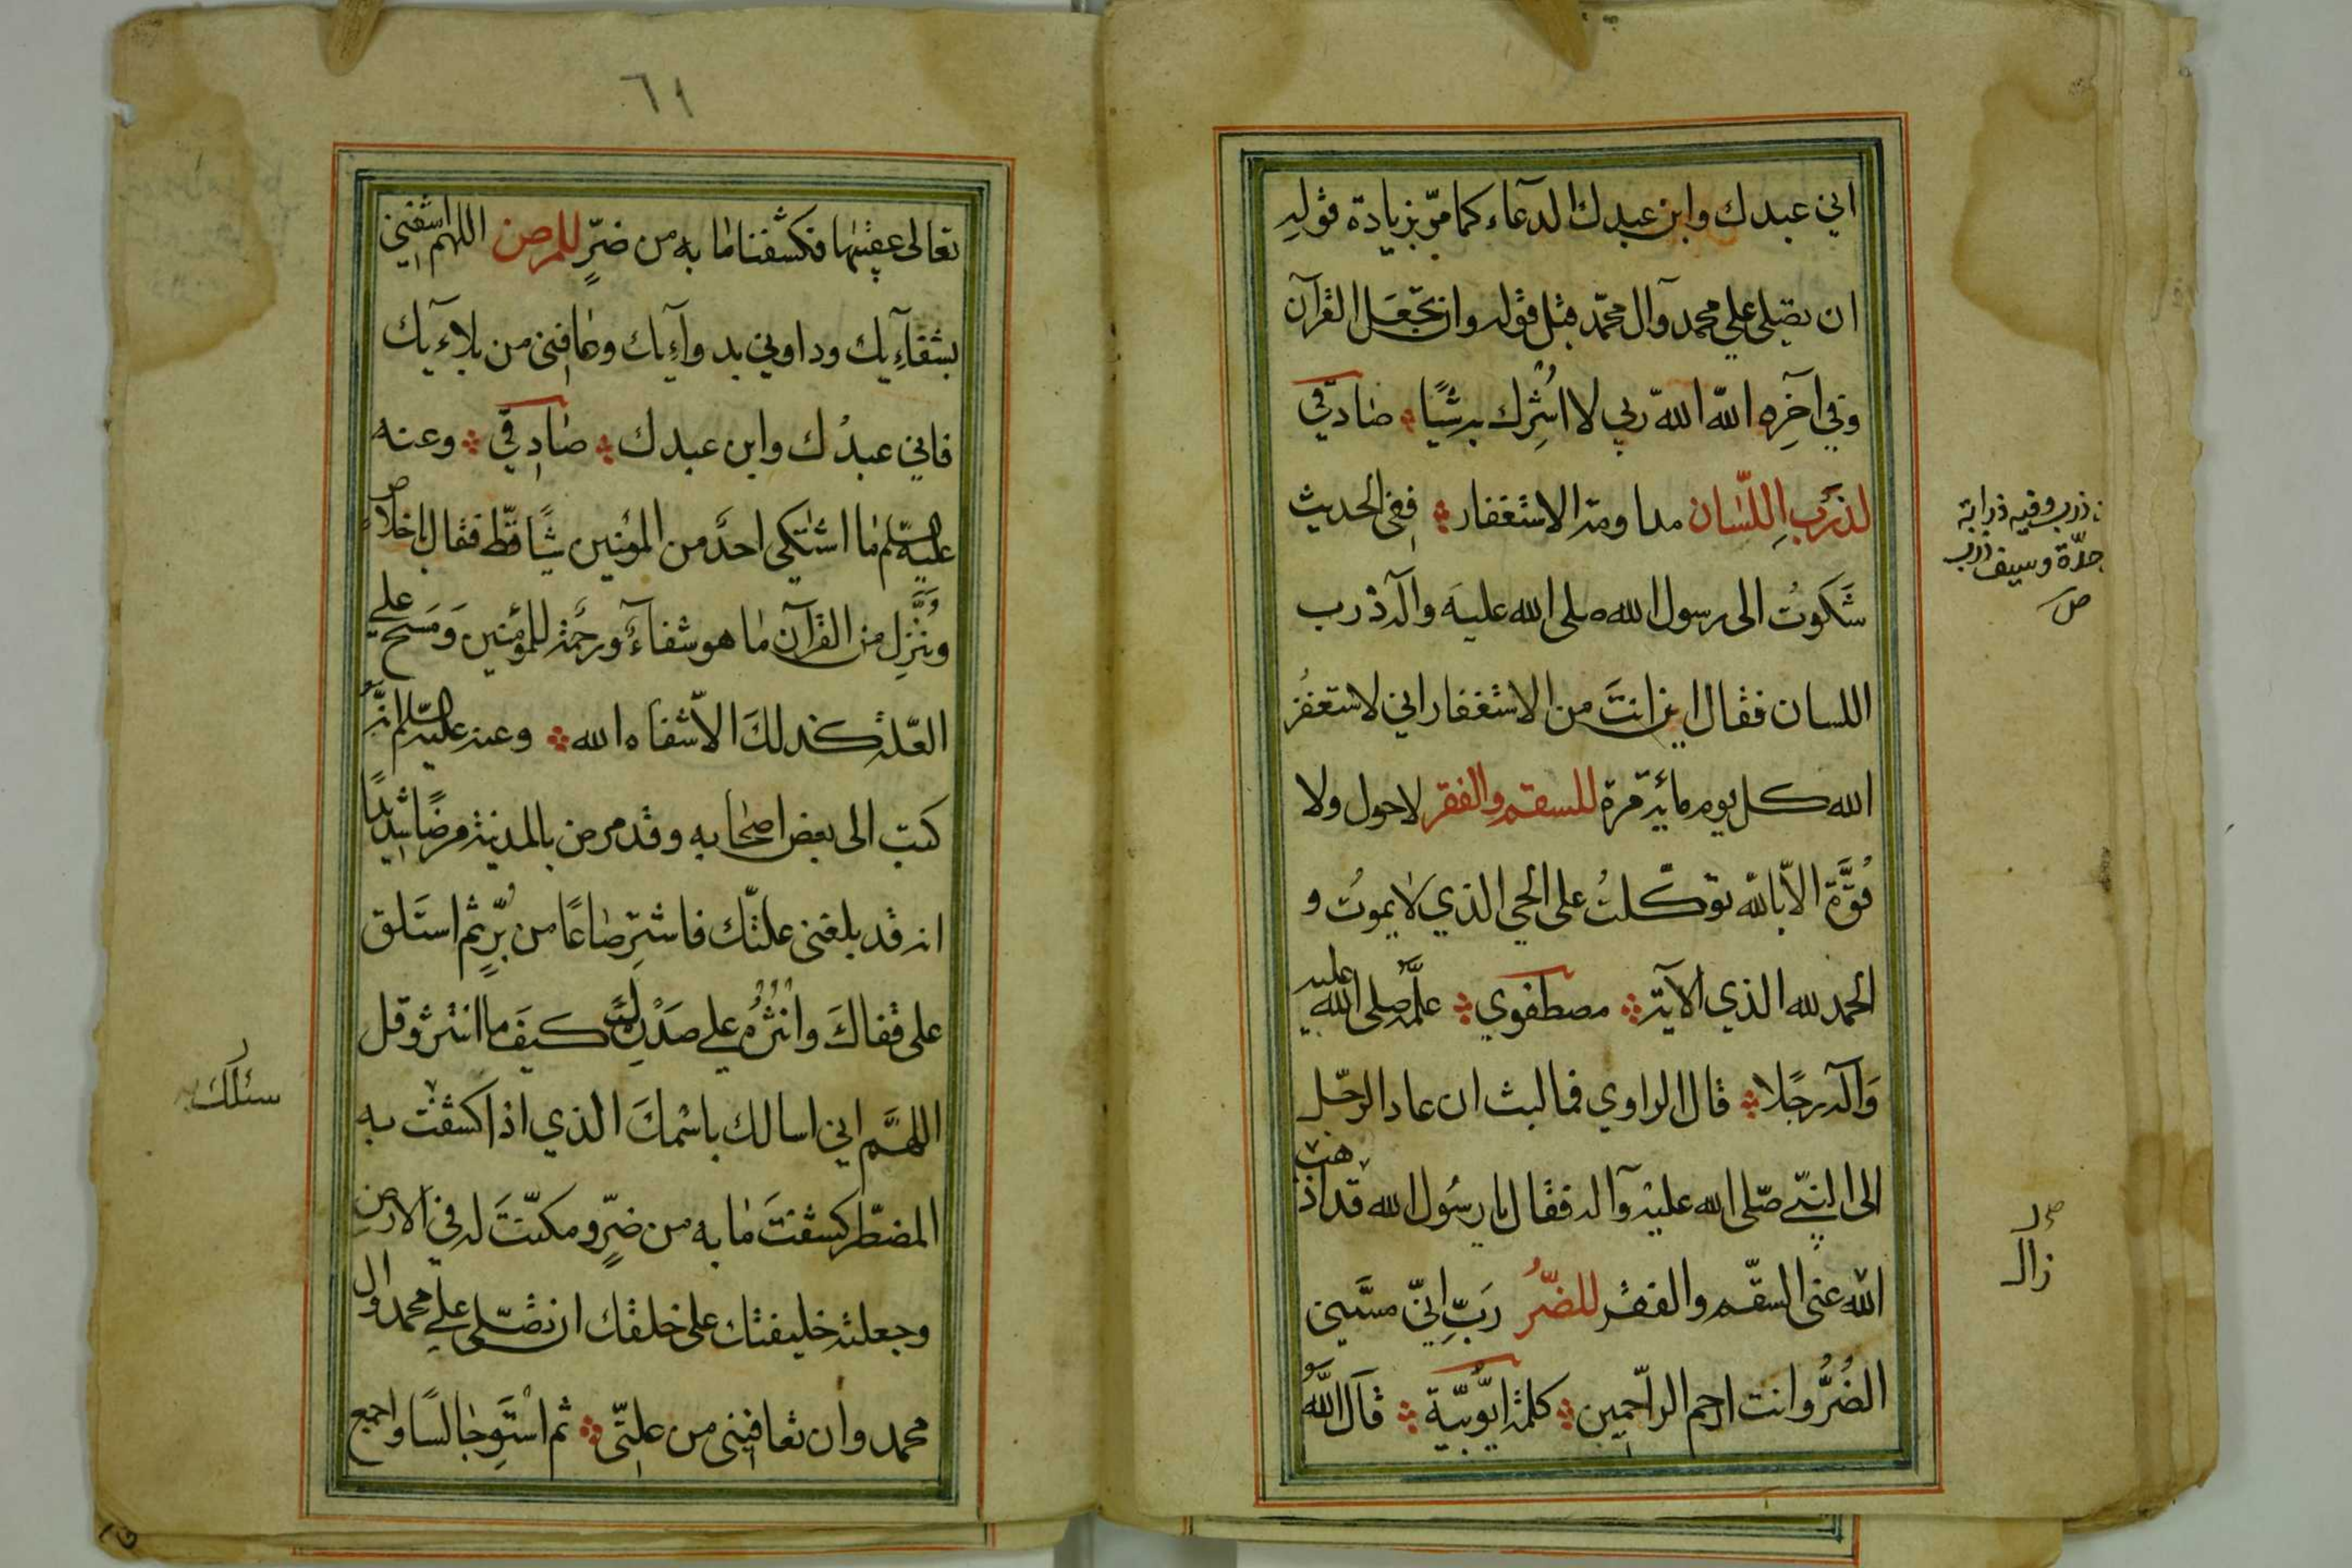 اني عبدك وابن عبدك الدعاء كما مرّ بزيادة قوله
ان تصلي علي محمد وآل محمّد قبل قوله وان تجعَل القرآن
وفي آخِره الله الله ربي لا اُشرِك به شيًا صادقي
لذَرَبِ اللّسان مداومة الاستغفار ففي الحديث
شَكوتُ الى رسول الله صلى الله عليه وآله ذرب
اللسان فقال اين انتَ من الاستغفار اني لاستغفرُ
الله كل يوم مائة مرة للسقم والفقر لا حول ولا
قُوَّة الّا بالله توكّلتُ على الحي الذي لا يموتُ و
الحمد لله الذي الآية مصطفوي علّمه صلى الله عليه
وَآله رجلًا قال الراوي فما لبث ان عاد الرجل
الى النبي صّلى الله عليه وآله فقال يا رسُول الله قد اذهب
الله عني السقم والفقر للضّرُ رَبِّ انيّ مسَّني
الضُرُّ وانت ارحم الراحمين كلمة ايّوبيّة قال الله
ذرب وفيه ذرابة
حدّة وسيف ذرب
ص
زال
٦١
تعالى عقيبها فكشفنا ما به من ضرٍّ للمرض اللهم اشفني
بشفآءيك وداوني بدوآءِيك وعافني من بلاءيك
فاني عبدُك وابن عبدك صادقي وعنه
عليه السّلم ما اشتكى احدٌ من المؤمنين شيًا قطّ فقال باخلاص
وَنُنَزِّل من القرآن ما هو شفآءٌ ورحمة للمؤمنين وَمَسح علي
العّلة كذلكَ الّا شفاه الله وعنه عليه السّلم انّه
كتب الى بعض اصحابه وقد مرض بالمدينة مرضًا شديدًا
انه قد بلغني علتّك فاشترِ صاعًا من بُرٍّ ثم استَلق
على قفاكَ وانثُرْهُ علي صَدْرِكَ كيفَ ما انتثر وقل
اللهمَّ اني اسالك باسْمكَ الذي اذا كشفتَ به
المضطّر كشفتَ ما به من ضرٍّ ومكنّتَ له في الارض
وجعلته خليفتك على خلقك ان تصّلي علي محمد وآل
محمد وان تعافيني من علتّي ثم استَوِ جالسًا واجمع
سئلك